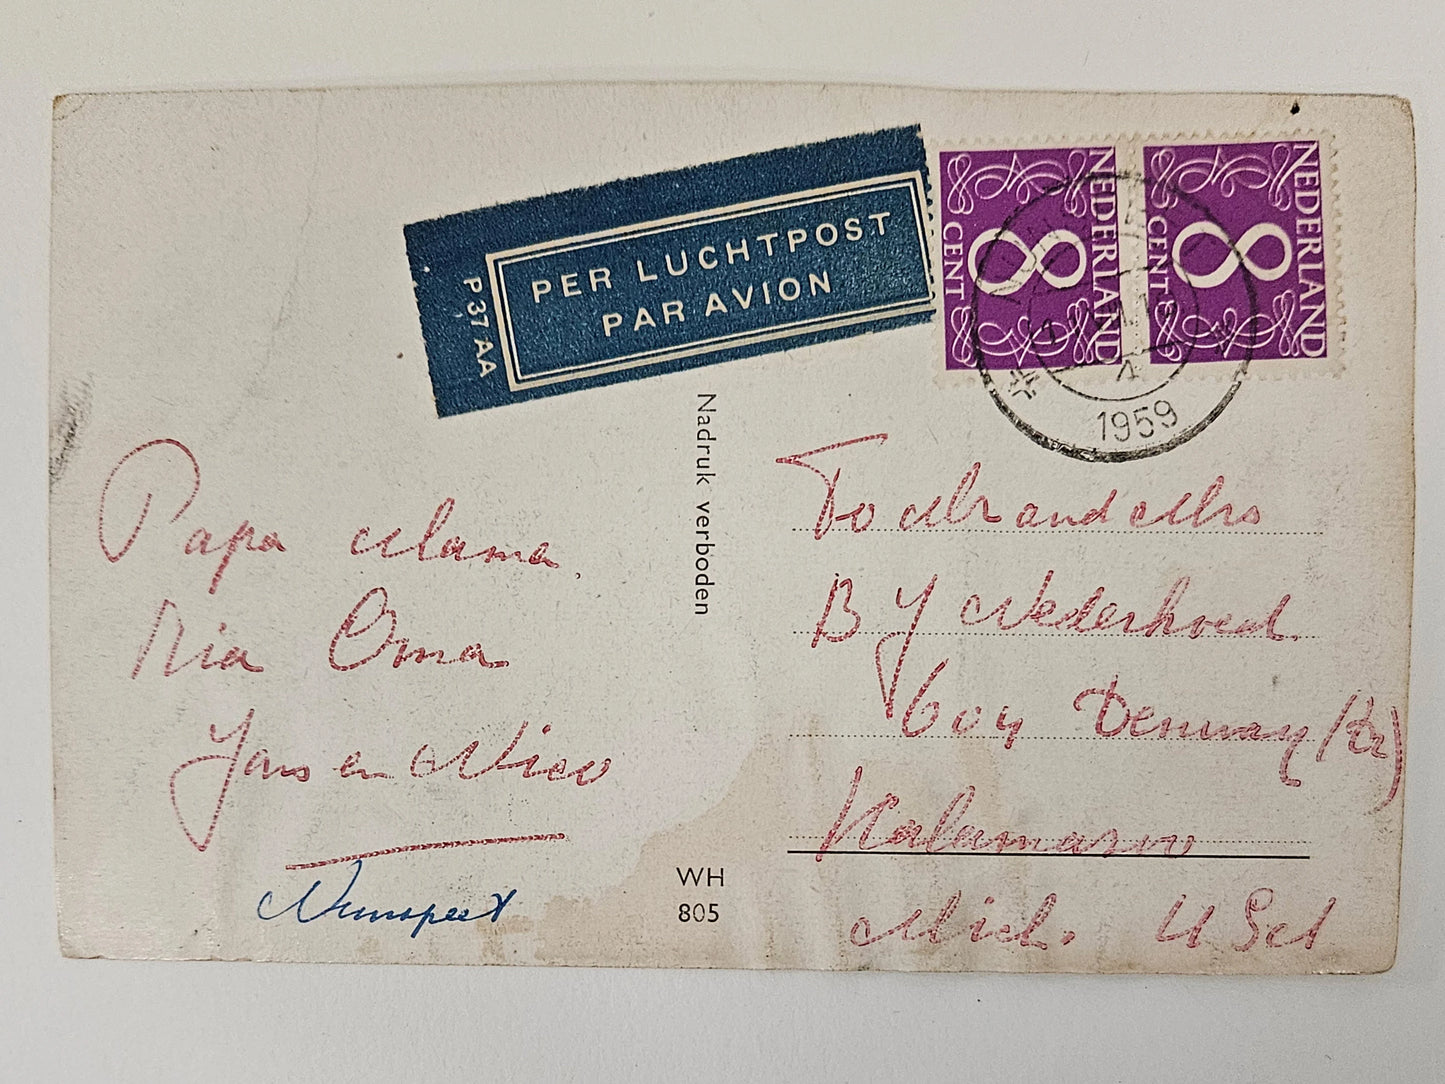 PER LUCHTPOST
PAR AVION
P 37 AA
NEDERLAND
8
CENT
NEDERLAND
8
CENT
1959
Nadruk verboden
Papa Mama.
Ria Oma
Jans en Nico
Nunspeet
WH
805
To Mr and Mrs
B J Nederhoed
604 Denway
Kalamazoo
Mich. USA